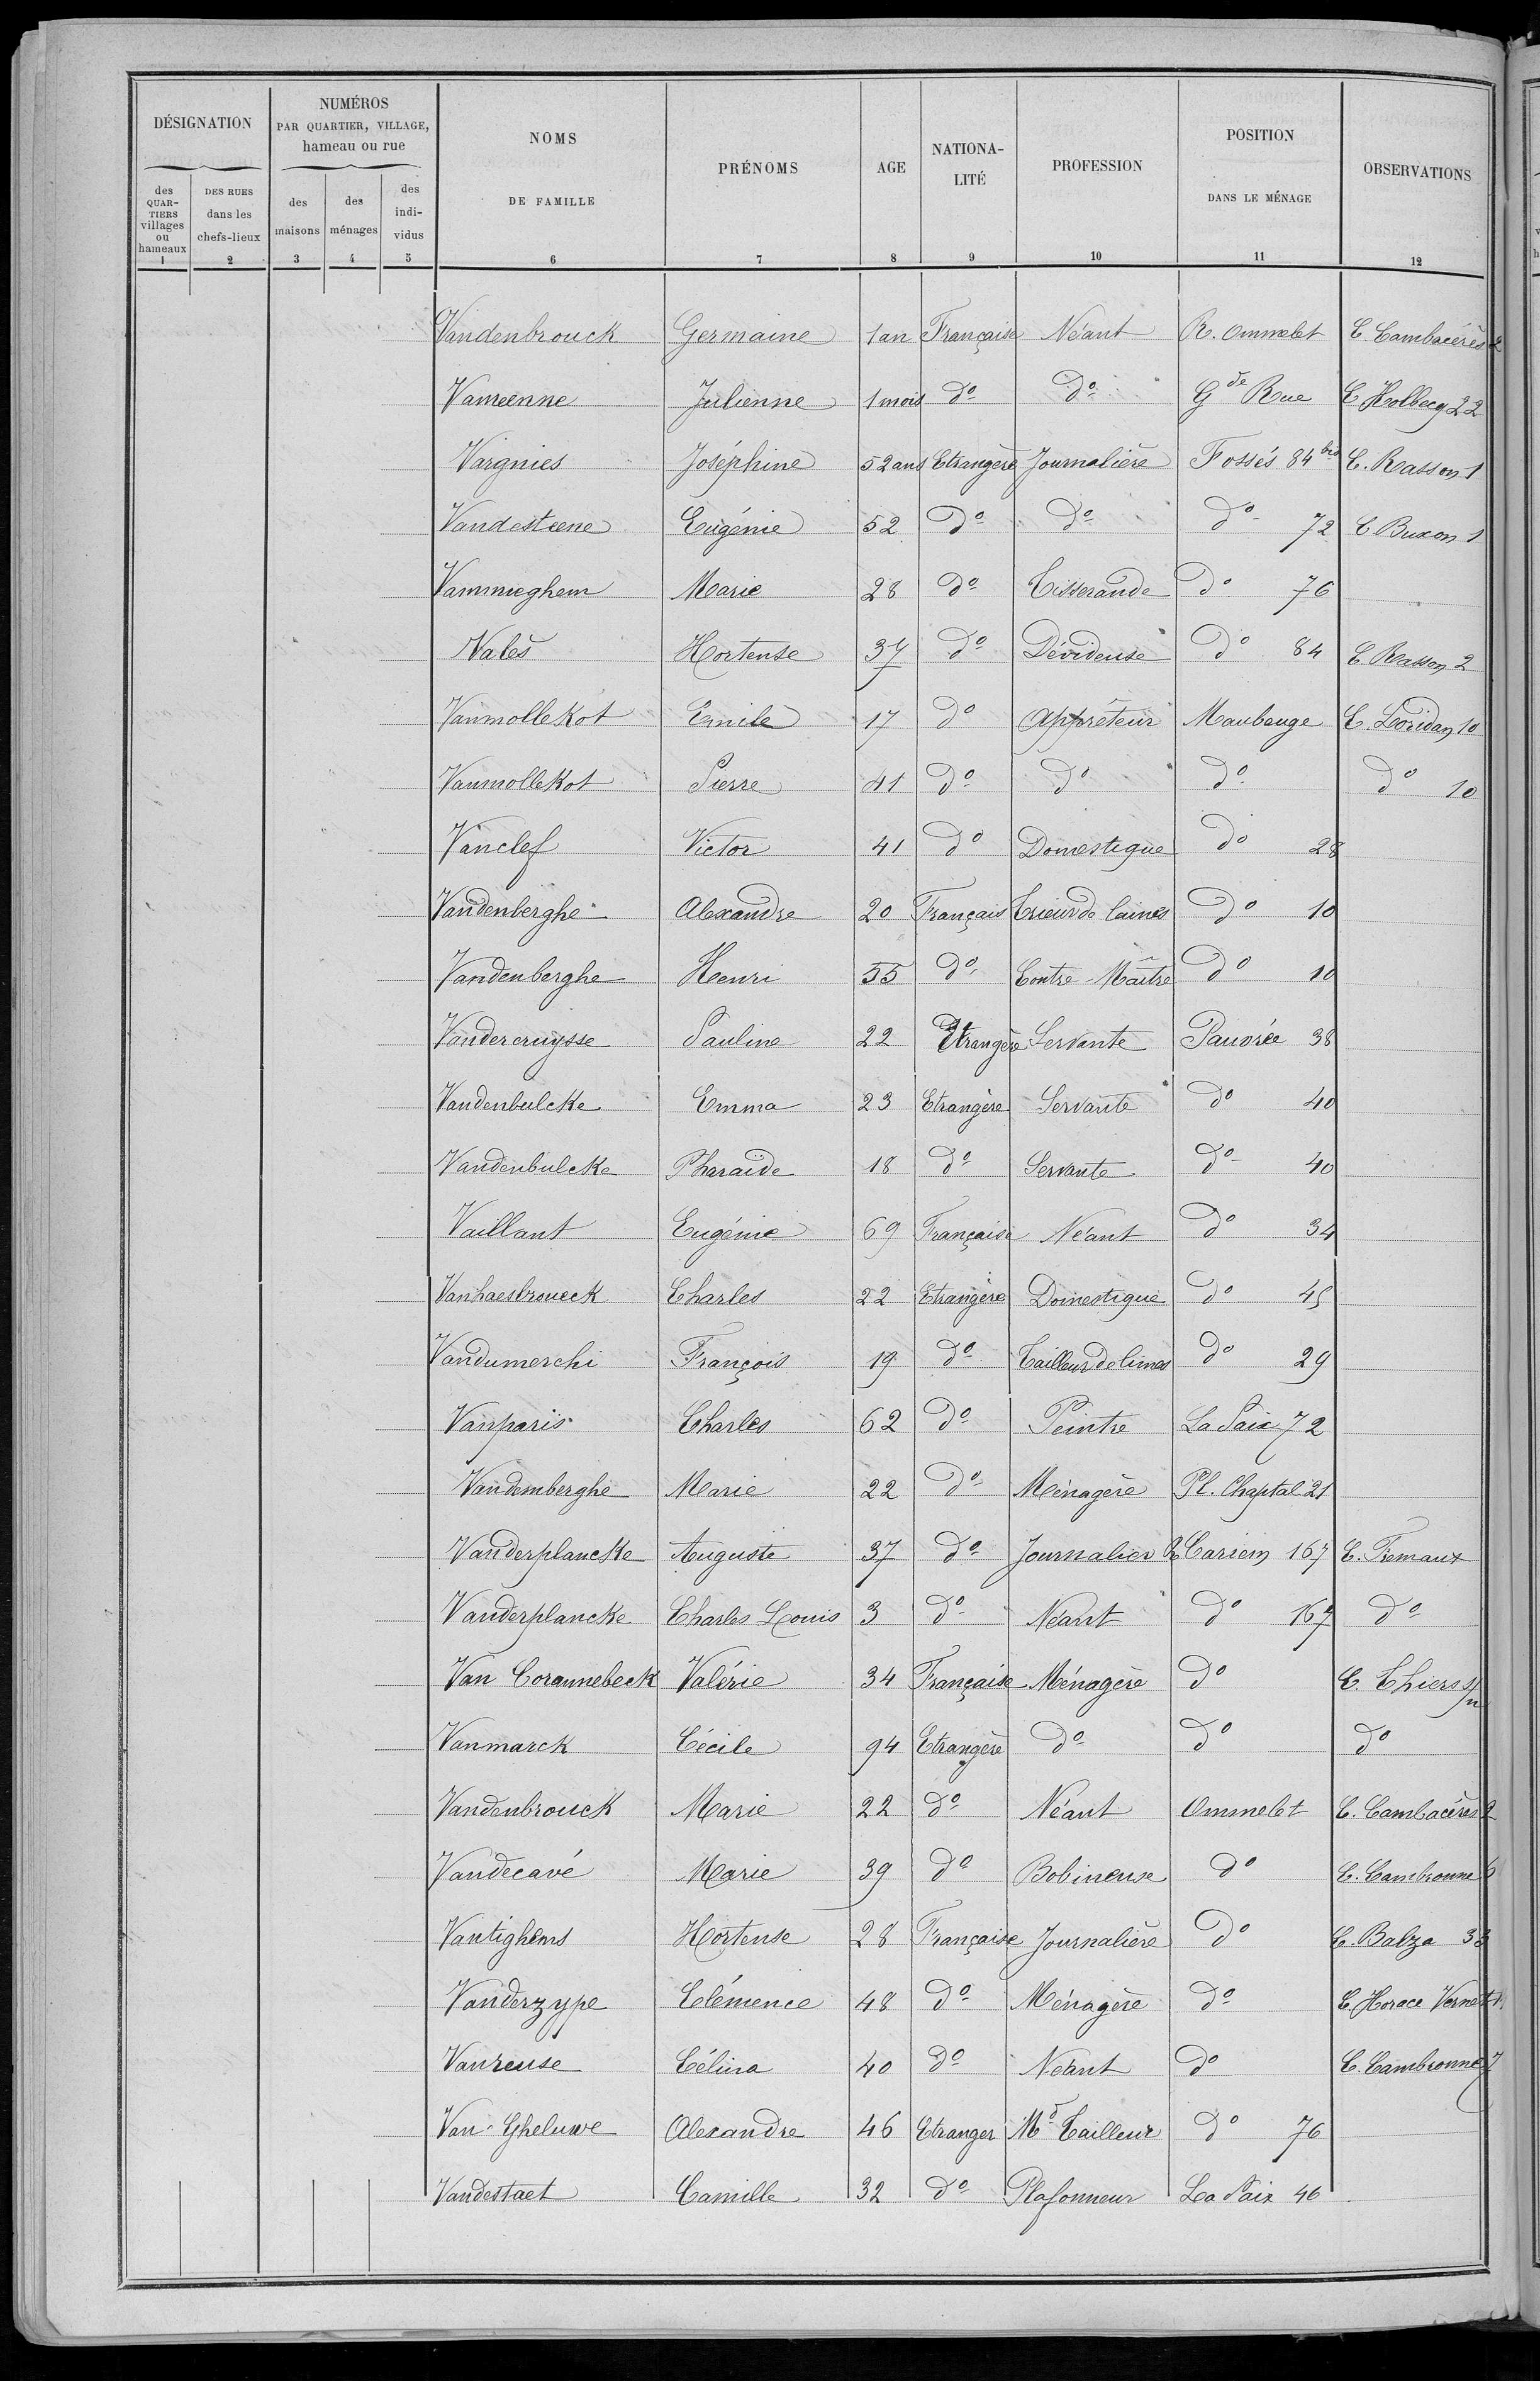 DÉSIGNATION
NUMÉROS
PAR QUARTIER, VILLAGE,
hameau ou rue
NOMS
DE FAMILLE
PRÉNOMS
AGE
NATIONA-
LITÉ
PROFESSION
POSITION
DANS LE MÉNAGE
OBSERVATIONS
des
QUAR-
TIERS
villages
ou
hameaux
DES RUES
dans les
chefs-lieux
des
maisons
des
ménages
des
indi-
vidus
1 2 3 4 5 6 7 8 9 10 11 12
Vandenbrouck Germaine 1 an Française Néant R. Ommelet C. Cambacérès 2
Julienne 1 mois do do Gde Rue C Holbecq 22
Vargnies Joséphine 52 ans Etrangère Journalière Fossés 84 bis C. Rasson 1
Vandesteene Eugénie 52 do do do 72 C Buxon 1
Vammieghem Marie 28 do Tisserande do 76
Valès Hortense 37 do Dévideuse do 84 C. Rasson 2
Vanmollekot Emile 17 do Apprêteur Maubeuge C. Loridan 10
Vanmollekot Pierre 41 do do do do 10
Vanclef Victor 41 do Domestique do 28
Vandenberghe Alexandre 20 Français Trieur de laines do 10
Vandenberghe Henri 55 do Contre-Maître do 10
Vandercruysse Pauline 22 Etrangère Servante Pauvrée 38
Vandenbulcke Emma 23 Etrangère Servante do 40
Vandenbulcke Pharaïde 18 do Servante do 40
Vaillant Eugénie 69 Française Néant do 34
Vanhaesbroueck Charles 22 Etrangère Domestique do 45
Vandumerchi François 19 do Tailleur de limes do 29
Vanparis Charles 62 do Peintre La Paix 72
Vandemberghe Marie 22 do Ménagère Pl. Chaptal 21
Vanderplancke Auguste 37 do Journalier R Cariem 167 C. Fremaux
Vanderplancke Charles Louis 3 do Néant do 167 do
Van Corannebeck Valérie 34 Française Ménagère do C. Thiers s/n
Vanmarck Cécile 94 Etrangère do do do
Vandenbrouck Marie 22 do Néant Ommelet C. Cambacérès 2
Vandecavé Marie 39 do Bobineuse do C. Cambronne 6
Vantighems Hortense 28 Française Journalière do C. Balza 33
Vanderzype Clémence 48 do Ménagère do C. Horace Vernet
Vanreuse Célina 40 do Néant do C. Cambronne 7
Van-Gheluwe Alexandre 46 Etranger Md Tailleur do 76
Vandestaet Camille 32 do Plafonneur La Paix 46